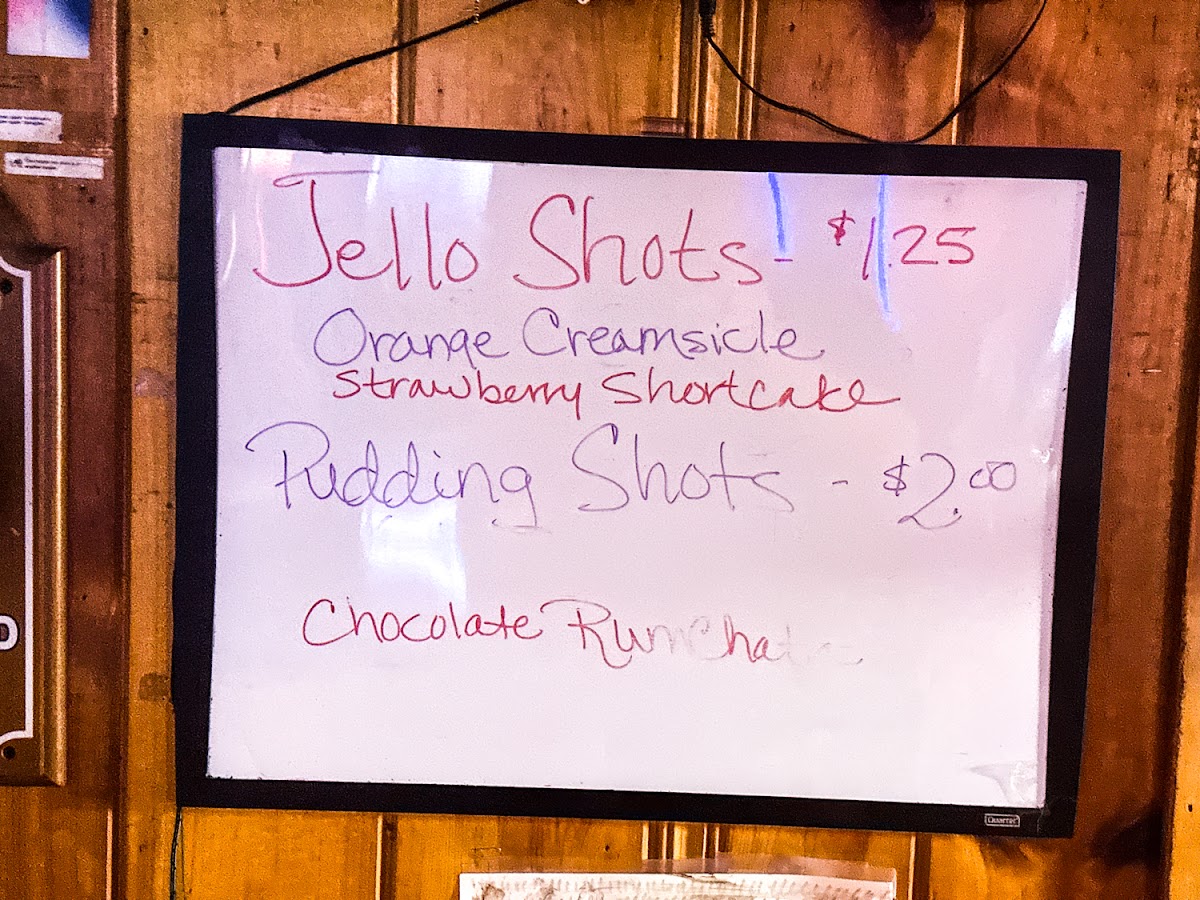 Jello Shots - $1.25
Orange Creamsicle
Strawberry Shortcake
Pudding Shots - $2.00
Chocolate RumChata
Quartet